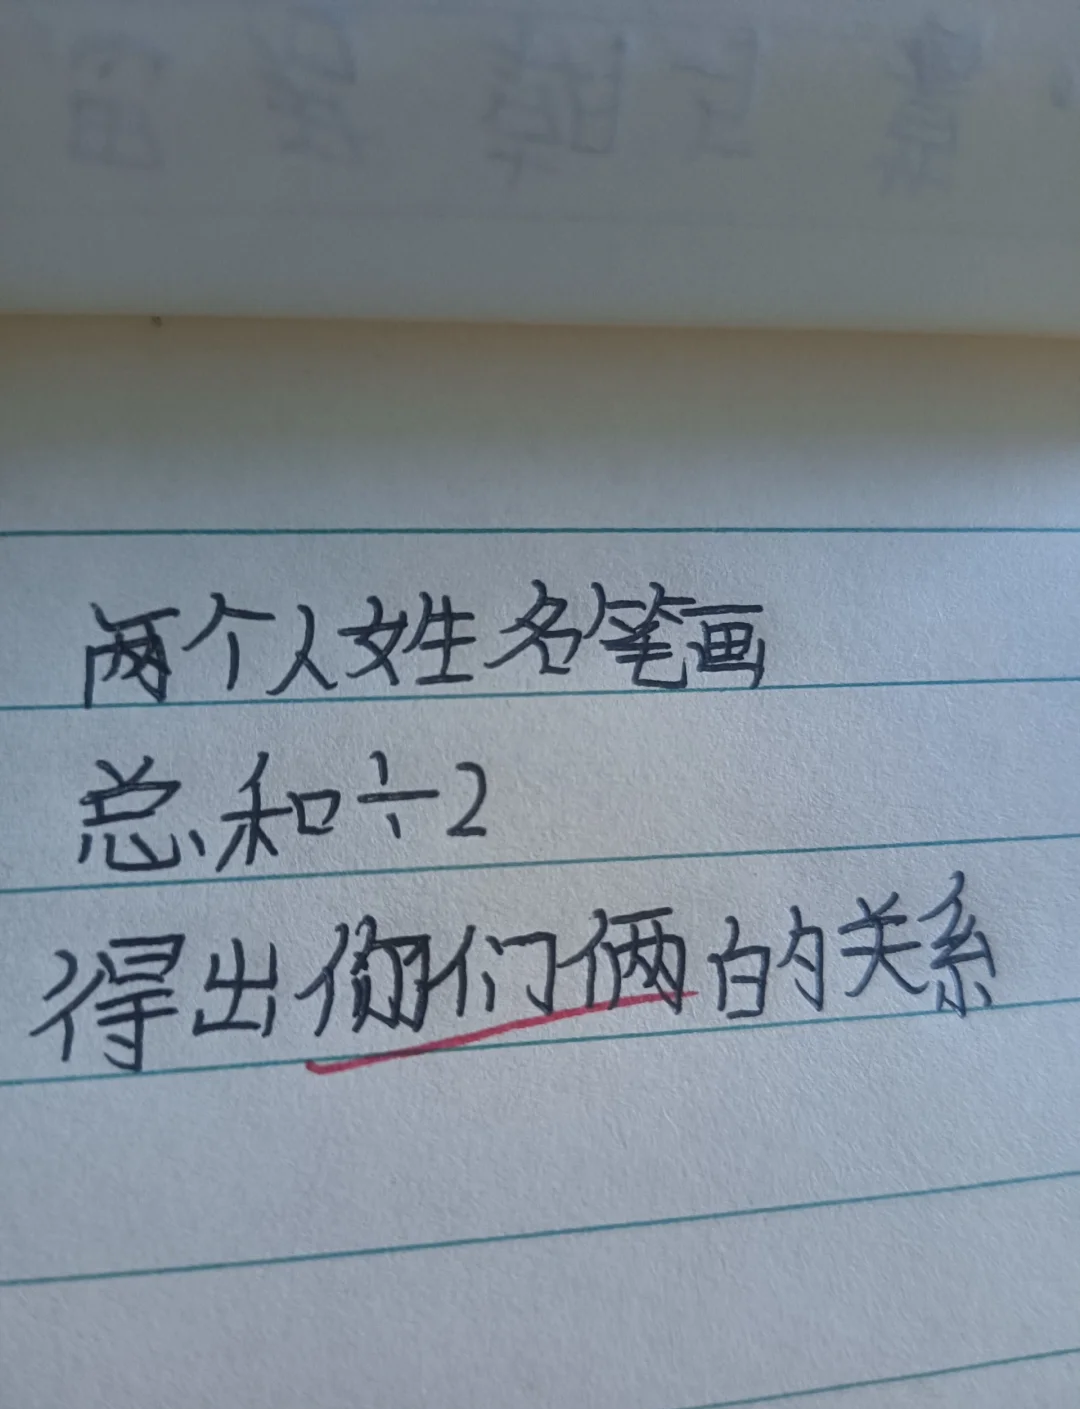 两个人姓名笔画
总和÷2
得出你们俩的关系